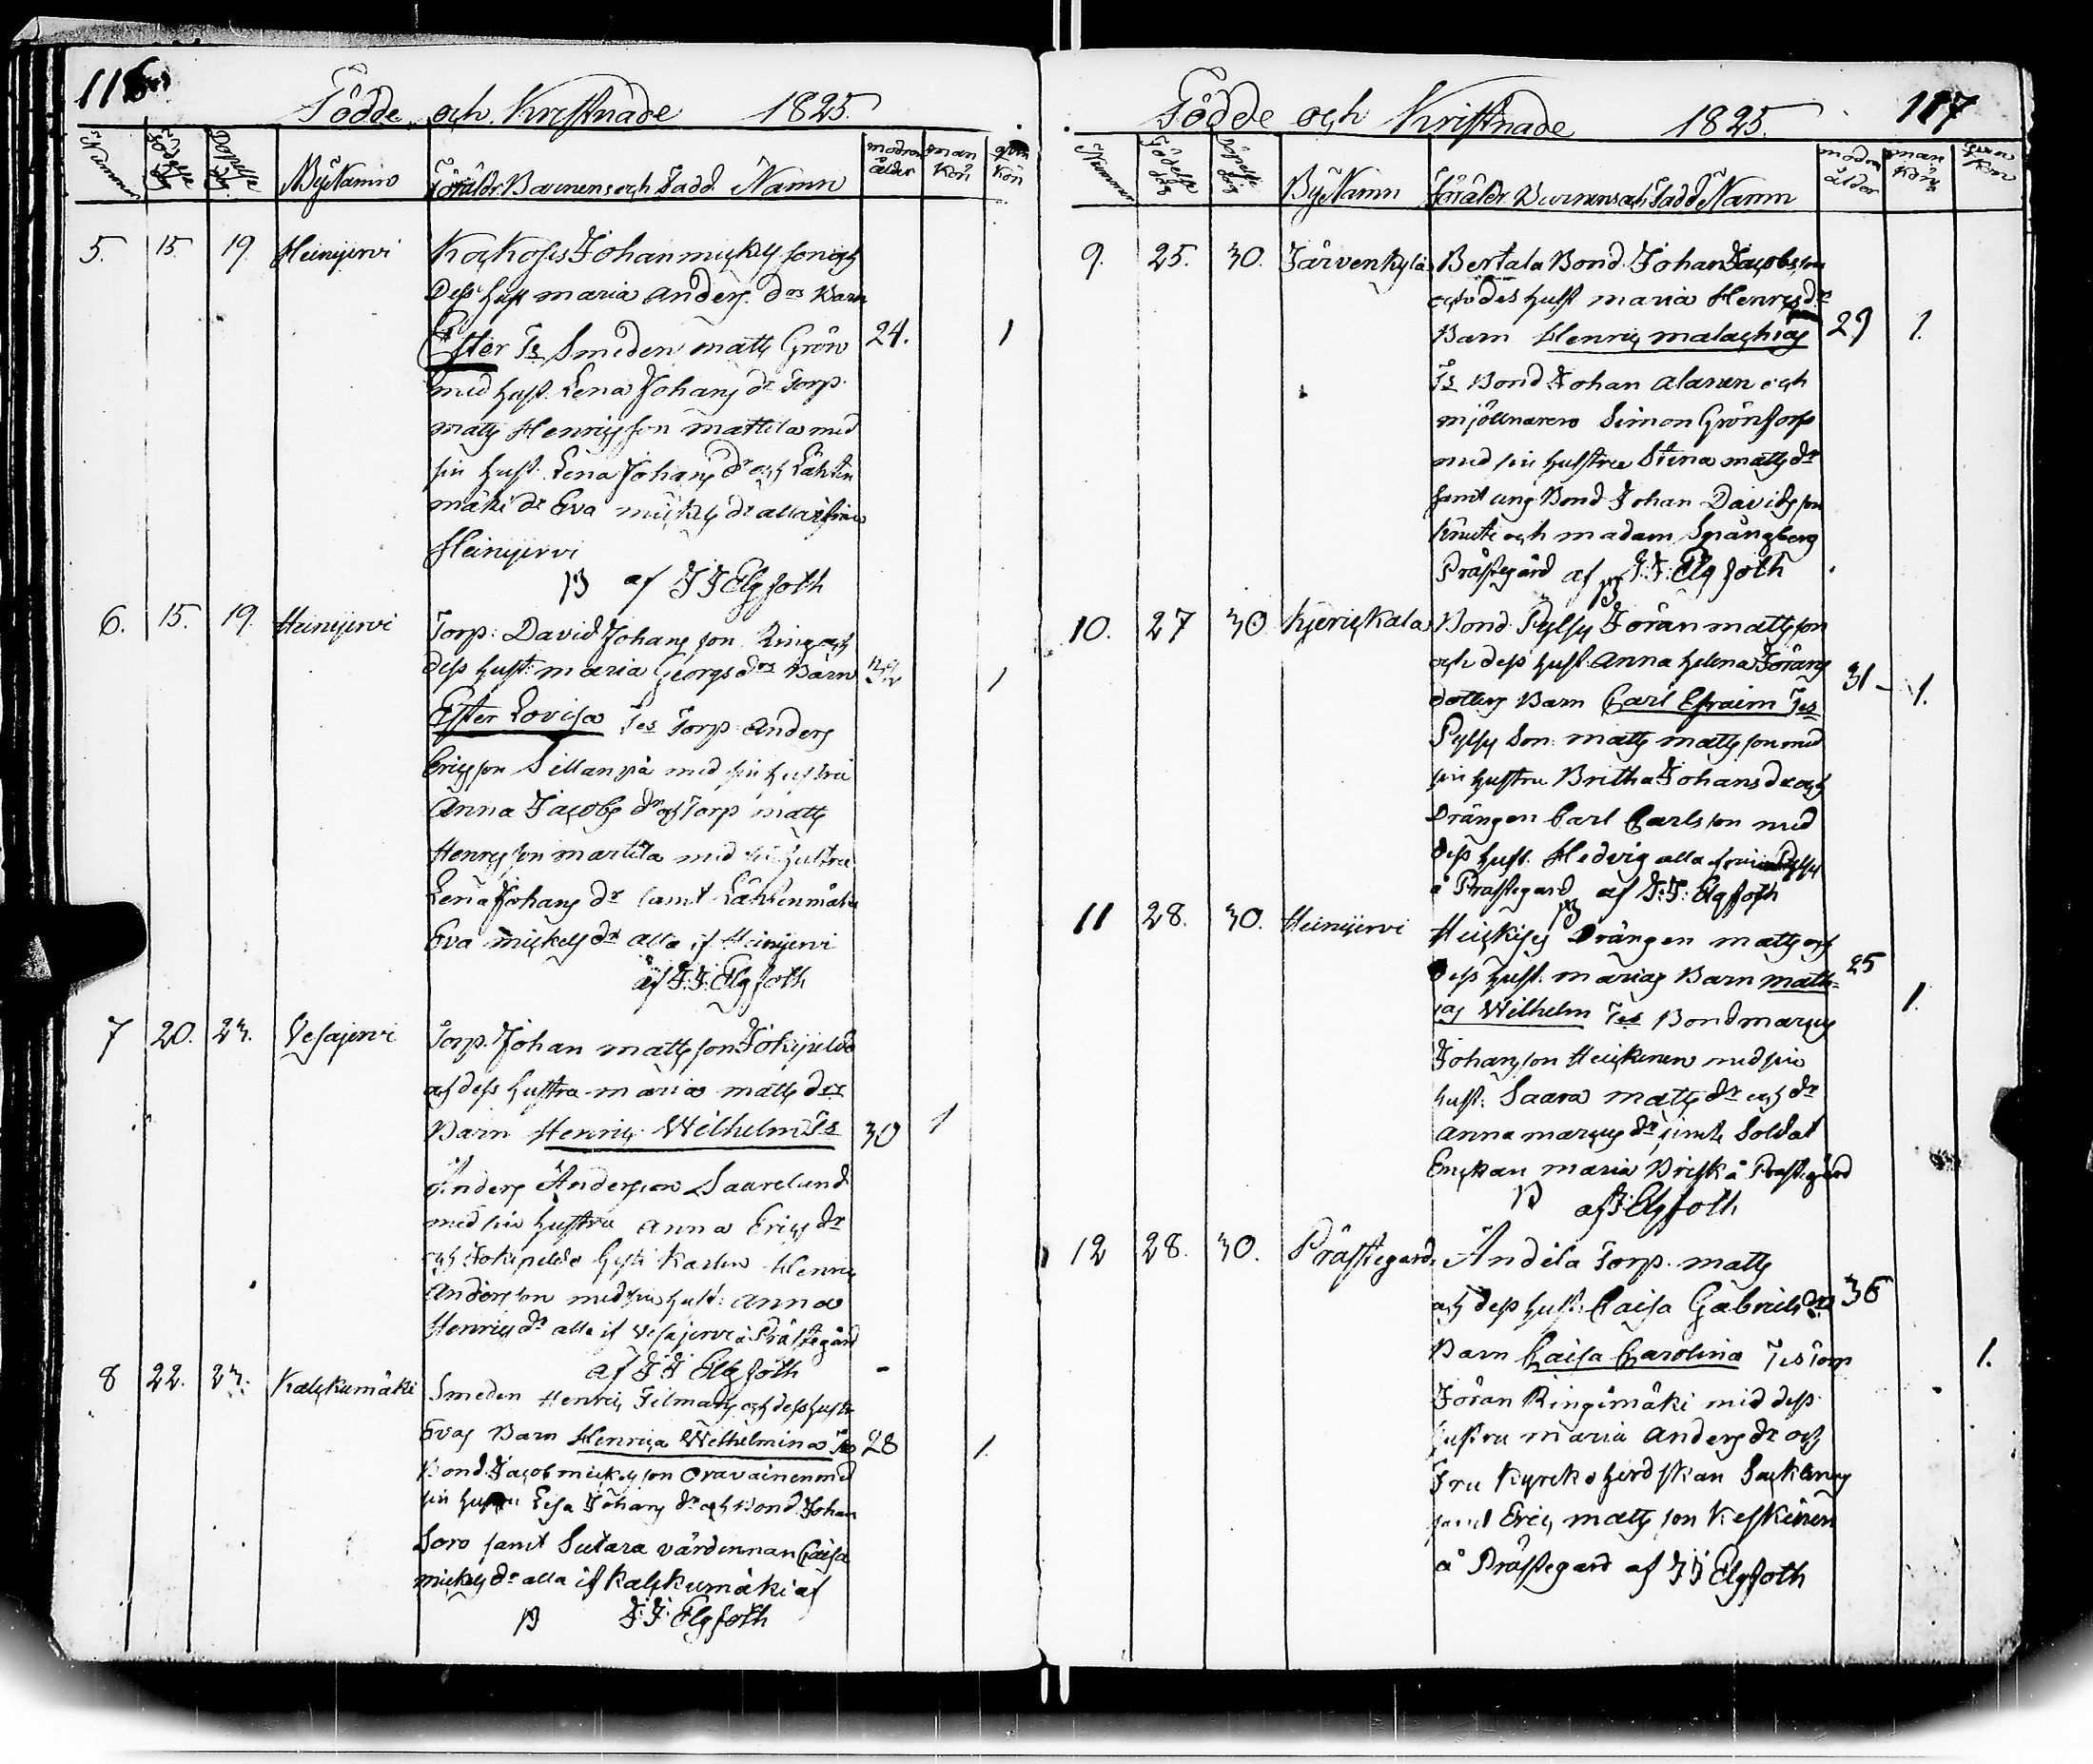 116
Födde och Kristnade 1825.
Nummer Födelse dag Döpelse dag ByNamn Föräldr. Barnens och Fadd. Namn modrens ålder man kön qvin kön
5. 15. 19. Heinijervi Johan Mickels son och
Dess hust maria Anders drs Barn
Ester Ts Smeden matts Grön 24. 1
med hust. Lena Johans dr Torp.
matts Henrics son mattila med
sin hust. Lena Johans dr och Lähten
mäki dr Eva mickels dr alla ifrån
Heinijervi
af J J Elgfoth
6. 15. 19. Heinijervi Torp: David Johans son Ring och
dess hust: maria Georgs drs Barn 32 1
Ester Lovisa Tes Torp: anders
Erics son Sillanpä med sin hustru
Anna Jacobs dr och Torp matts
Henrics son martila med sin hustru
Lena Johans dr samt Lähtenmäki
Eva mickels dr alla if Heinijervi
af J:J: Elgfoth
7 20. 23. Vesajervi Torp. Johan matts son Jokipeldo
och dess hustru maria matts drs
Barn Henric Wilhelm Ts 30 1
Anders Anderson Saarelund
med sin hustru anna Erics dr
och Jokipeldo Henric
Anderson med sin hust: anna
Henrics dr alla if Vesajervi å Prästegård
af J J Elgfoth
8 22. 23. Kalckumäki Smeden Henric Filmans och dess hustr
Evas Barn Henrica Wilhelmina Ts 28 1.
Bond. Jacob mickels son Oravainen med
sin hustru Lisa Johans dr och Bond. Johan
Soro samt Sutara värdinnan Caisa
mickels dr alla if Kalckumäki af
J:J: Elgfoth
117
Födde och Kristnade 1825.
Nummer Födelse dag Döpelse dag ByNamn Föräldr. Barnens och Fadd Namn modrens ålder man kön qvin kön
9. 25. 30. Järvenkylä Bertala Bond. Johan Jacobs son
och des hust maria Henrics dr
Barn Henric malachias 29 1.
Ts Bond Johan alanen och
mjöllnaren Simon Grönfors
med sin hustru Stina matts dr
samt ung Bond Johan Davids son
Knuti och madam Spångberg
Prästegård af J:J: Elgfoth
10. 27 30 Kjerickala Bond. Pylsy Jöran matts son
och dess hust. Anna Helena Jörans
dotters Barn Carl Efraim Tes 31 1.
Pylsy Son: matts matts son med
sin hustru Britha Johans dr och
Drängen Carl Carlsson med
dess hust. Hedvig alla
å Prästegård af J:J: Elgfoth
11 28. 30. Heinijervi Drängen matts och
dess hust. marias Barn math= 25
ias Wilhelm Tes Bond marcus 1.
Johans son Heickinen med sin
hust: Saara matts dr och dr
Anna marcus dr samt Soldat
Enckan maria Brisk å Prästegård
af J: Elgfoth
12 28. 30. Prästegård. Andila Torp. matts
och dess hust: Caisa Gabriels drs 36
Barn Caisa Carolina Tes Torp 1.
Jöran Ringimäki med dess
hustru maria anders dr och
Fru Kyrckoherdskan
samt Eric matts son Keskinen
å Prästegard af J J Elgfoth